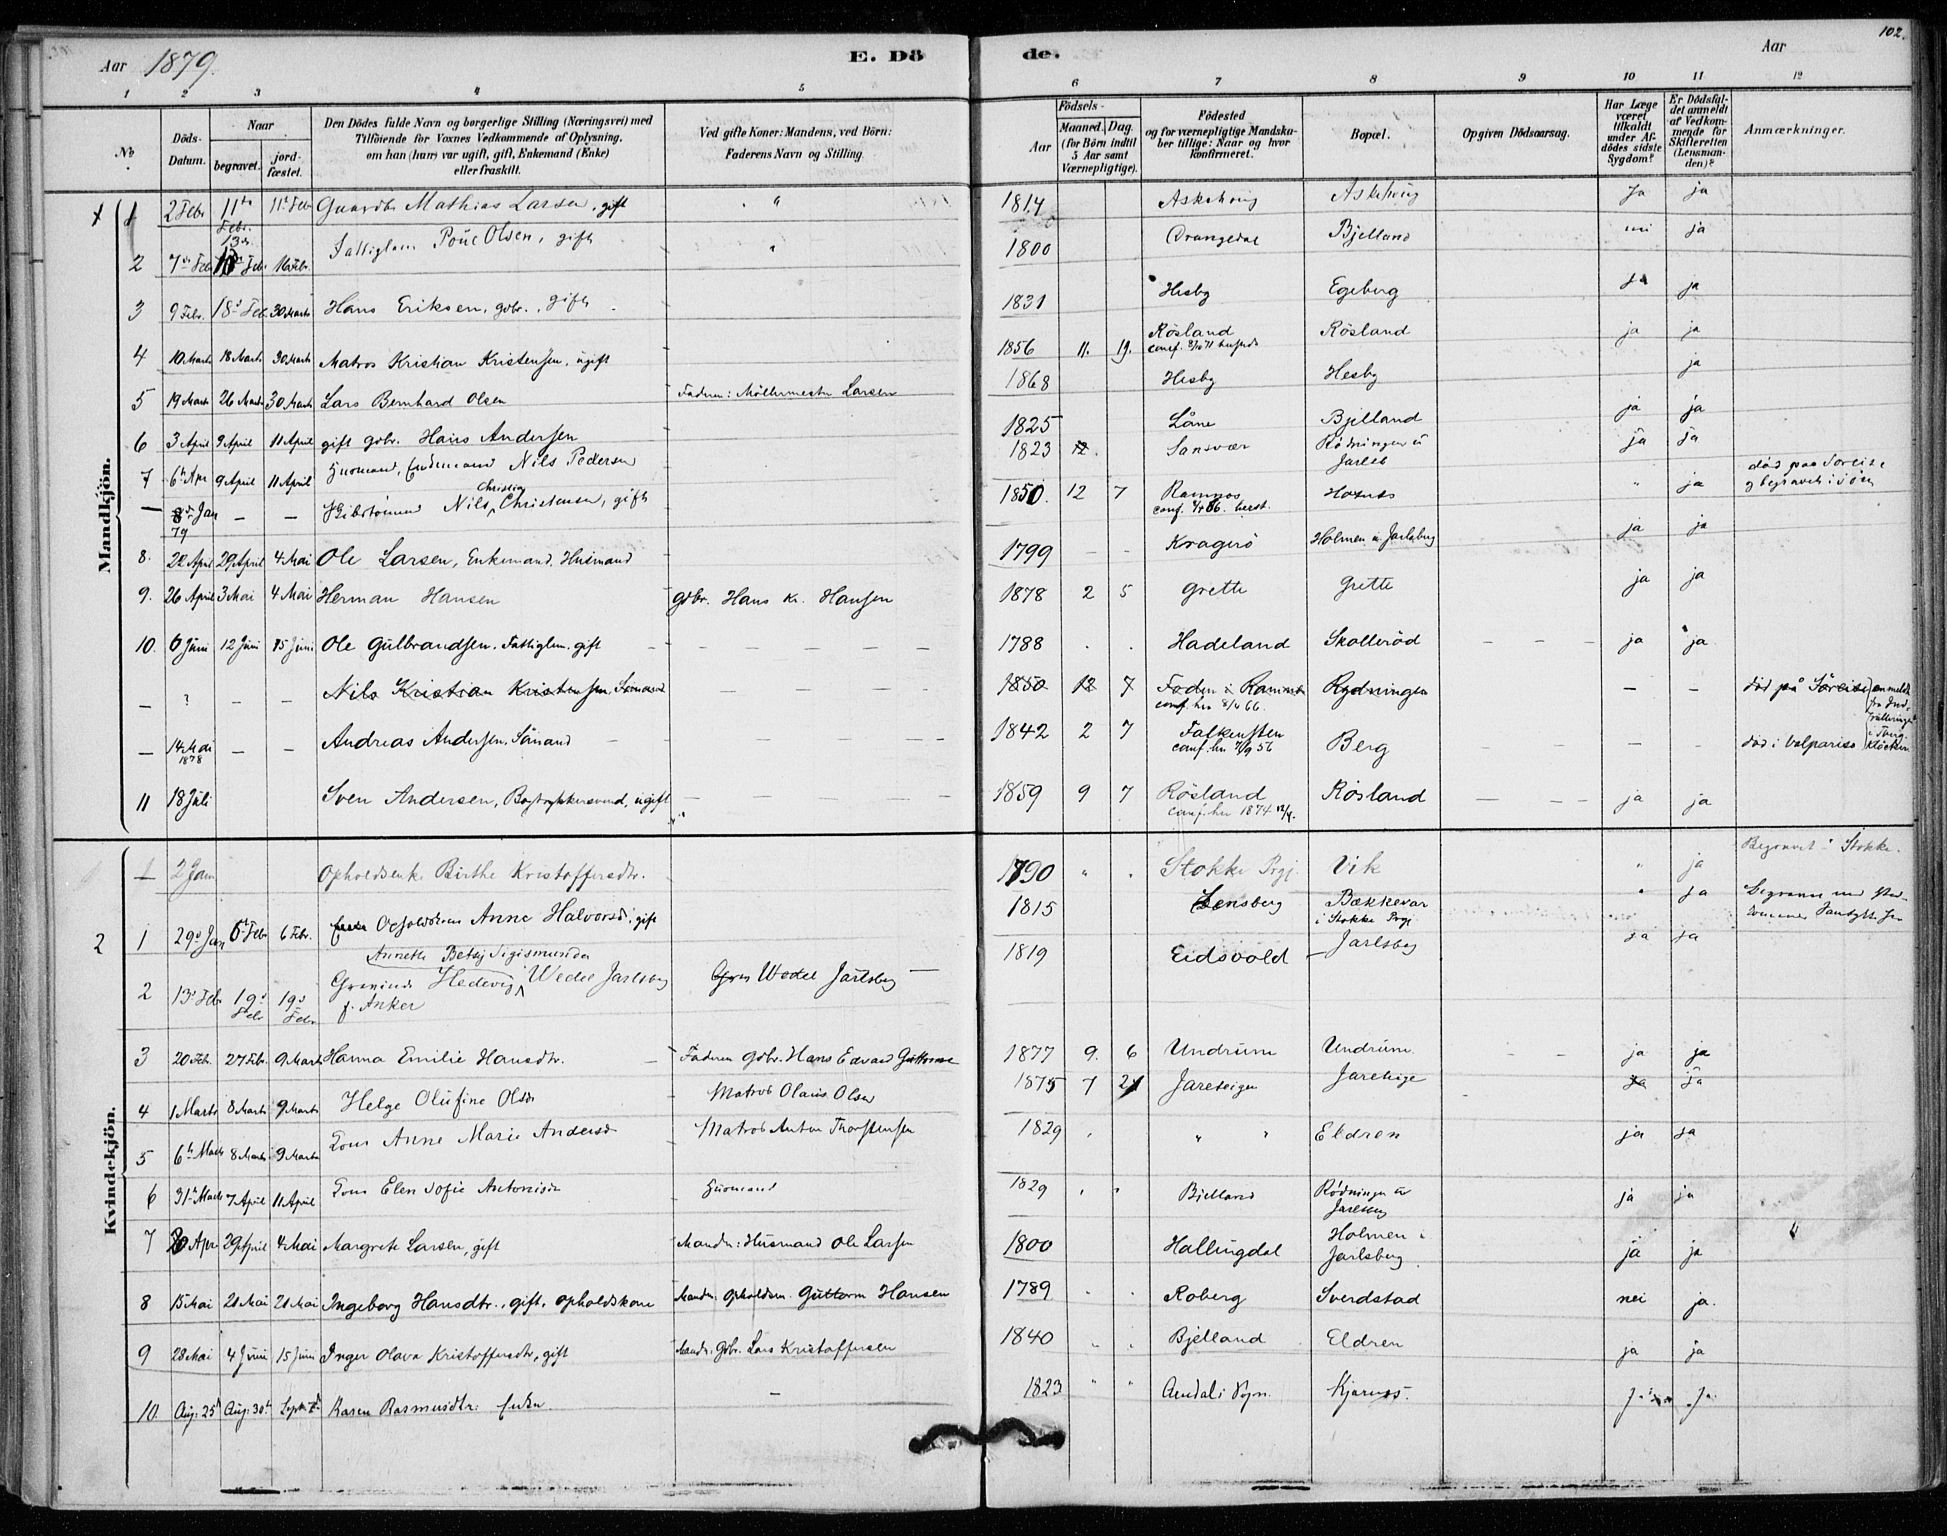 Aar 1879. E. Dö de. Aar 102.
1 2 3 4 5 6 7 8 9 10 11 12
No. Döds-Datum. Naar begravet. jordfæstet. Den Dödes fulde Navn og borgerlige Stilling (Næringsvei) med Tilföiende for Voxnes Vedkommende af Oplysning, om han (hun) var ugift, gift, Enkemand (Enke) eller fraskilt. Ved gifte Koner: Mandens, ved Börn: Faderens Navn og Stilling. Födsels- Aar Maaned. Dag. (for Börn indtil 5 Aar samt Værnepligtige). Födested og for værnepligtige Mandskaber tillige: Naar og hvor konfirmeret. Bopæl. Opgiven Dödsaarsag. Har Læge været tilkaldt under Afdödes sidste Sygdom? Er Dödsfaldet anmeldt af Vedkommende for Skifteretten (Lensmanden)? Anmærkninger.
Mandkjön.
1 2 Febr 11te Febr. 11te Febr Mathias Larsen, gift " 1814 Askehoug Askehoug Ja ja
2 7de Feb 13de Feb. 16 Febr. Olsen, gift " 1800 Drangedal Bjelland nei ja
3 9 Febr. 18de Feb. 30 Marts Hans Eriksen, gbr., gift 1831 Hesby Egeberg ja ja
4 10 Marts 18 Marts 30 Marts Matros Kristian Kristensen, ugift 1856 11. 19. Røsland conf. Røsland ja ja
5 19 Marts 26 Marts 30 Marts Lars Bernhard Olsen Faderen: Møllermester Larsen 1868 Hesby Hesby ja
6 3 April 9 April 11 April gift gbr. Hans Andersen 1825 Låne Bjelland ja ja
7 6te Apr 9 April 11 April Husmand, Enkemand Nils Pedersen 1823 12. Sansvær Rødningen u Jarlsb ja ja
— 8de Jan 79 — — Nils Christian Christensen, gift 1850. 12 7 Ramnæs conf. " ja død paa Søreise og begravet i Søen
8. 22 April 29 April 4 Mai Ole Larsen, Enkemand, Husmand 1799 - - Kragerö Holmen u. Jarlsberg ja ja
9. 26 April 3 Mai 4 Mai Herman Hansen gbr. Hans Kr. Hansen 1878 2 5 Grette Grette ja ja
10. 6 Juni 12 Juni 15 Juni Ole Gulbrandsen, Fattiglem, gift 1788 . . Hadeland Skallerød ja ja
— ? — — Nils Kristian Kristensen, Sømand 1850 12 7 Foden i Ramnes conf. her 8/4 66. Rydningen — — død på Søreise
— 14 Mai 1878 — — Andreas Andersen, Sömand 1842 2 7 Falkensten conf. her 7/9 56 Berg — — død i Valpariso anmeldt fra i Tbrg. Kløcker
11 18 Juli Sven Andersen, Bogtrykkersvend, ugift 1859 9 7 Røsland conf. her 1874 12/4. Røsland ja ja
Kvindekjön.
1 2 Jan Opholdsenke Birthe Kristoffersdtr. 1790 " . Stokke Prgj. Vik " ja Begravet i Stokke.
2 1 29de Jan 6te Febr 6 Febr. Opholdskone Anne Halvorsd., gift 1815 Tønsberg Bækkevar i Stokke Prgj " ja
2 13de Feb 19de Feb 19de Febr Grevinde Hedevig Annette Betsy Sigismunda Wedel Jarlsberg f. Anker Grev Wedel Jarlsberg 1819 Eidsvold Jarlsberg ja ja
3 20 Feb. 27 Feb. 9 Marts Hanna Emilie Hansdtr. Faderen gbr. Hans Edvard Guttormse 1877 9. 6 Undrum Undrum ja ja
4 1 Marts 8 Marts 9 Marts Helge Olufine Olsdr Matros Olaus Olsen 1875 7 21 Jareteigen Jareteige ja ja
5 6te Marts 8 Marts 9 Marts Kone Anne Marie Andersd Matros Anton Thorstensen 1829 . " " Eldren ja ja
6 31te Marts 7 April 11 April Kone Elen Sofie Antonisdr Husmand 1829 Bjelland Rødningen u Jarlsberg ja ja
7 20 Apr 29 April 4 Mai Margrete Larsen, gift Manden: Husmand Ole Larsen 1800 Hallingdal Holmen i Jarlsberg ja ja
8 15 Mai 21 Mai 21 Mai Ingeborg Hansdtr., gift, opholdskone Manden: Opholdsm. Guttorm Hansen 1789 . . Roberg Sverdstad nei ja.
9 28 Mai 4 Juni 15 Juni Inger Olava Kristoffersdtr, gift Manden: Gbr. Lars Kristoffersen 1840 " . Bjelland Eldren ja ja
10. Aug: 25de Aug: 30te Septb. 7de Karen Rasmusdtr: Enke. — 1823 " " Arendals Sogn. Kjærnæs. Ja. Ja.